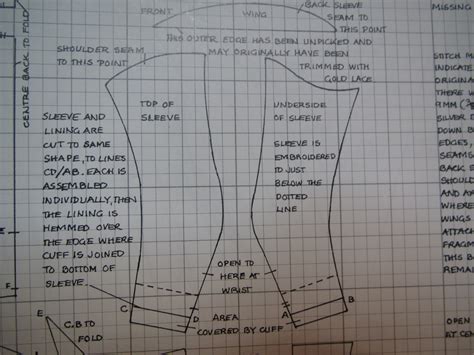 FRONT
WING
BACK SLEEVE
SEAM TO
THIS POINT
MISSING
THIS OUTER EDGE HAS BEEN UNPICKED AND
MAY ORIGINALLY HAVE BEEN
TRIMMED WITH
GOLD LACE
SHOULDER SEAM
TO THIS POINT
CENTRE BACK TO FOLD
TOP OF
SLEEVE
UNDERSIDE
OF SLEEVE
SLEEVE IS
EMBROIDERED
TO JUST
BELOW THE
DOTTED
LINE
SLEEVE AND
LINING ARE
CUT TO SAME
SHAPE, TO LINES
CD/AB. EACH IS
ASSEMBLED
INDIVIDUALLY, THEN
THE LINING IS
HEMMED OVER
THE EDGE WHERE
CUFF IS JOINED
TO BOTTOM OF
SLEEVE
OPEN TO
HERE AT
WRIST
C
D
A
B
AREA
COVERED BY CUFF
E
C.B TO
FOLD
STITCH M
INDICATE
ORIGINA
THERE W
SILVER
DOWN B
EDGES,
SEAMS
BACK S
SHOUL
AND AR
WHERE
WINGS
ATTACH
FRAGM
THIS B
REMAI
OPEN
AT CE